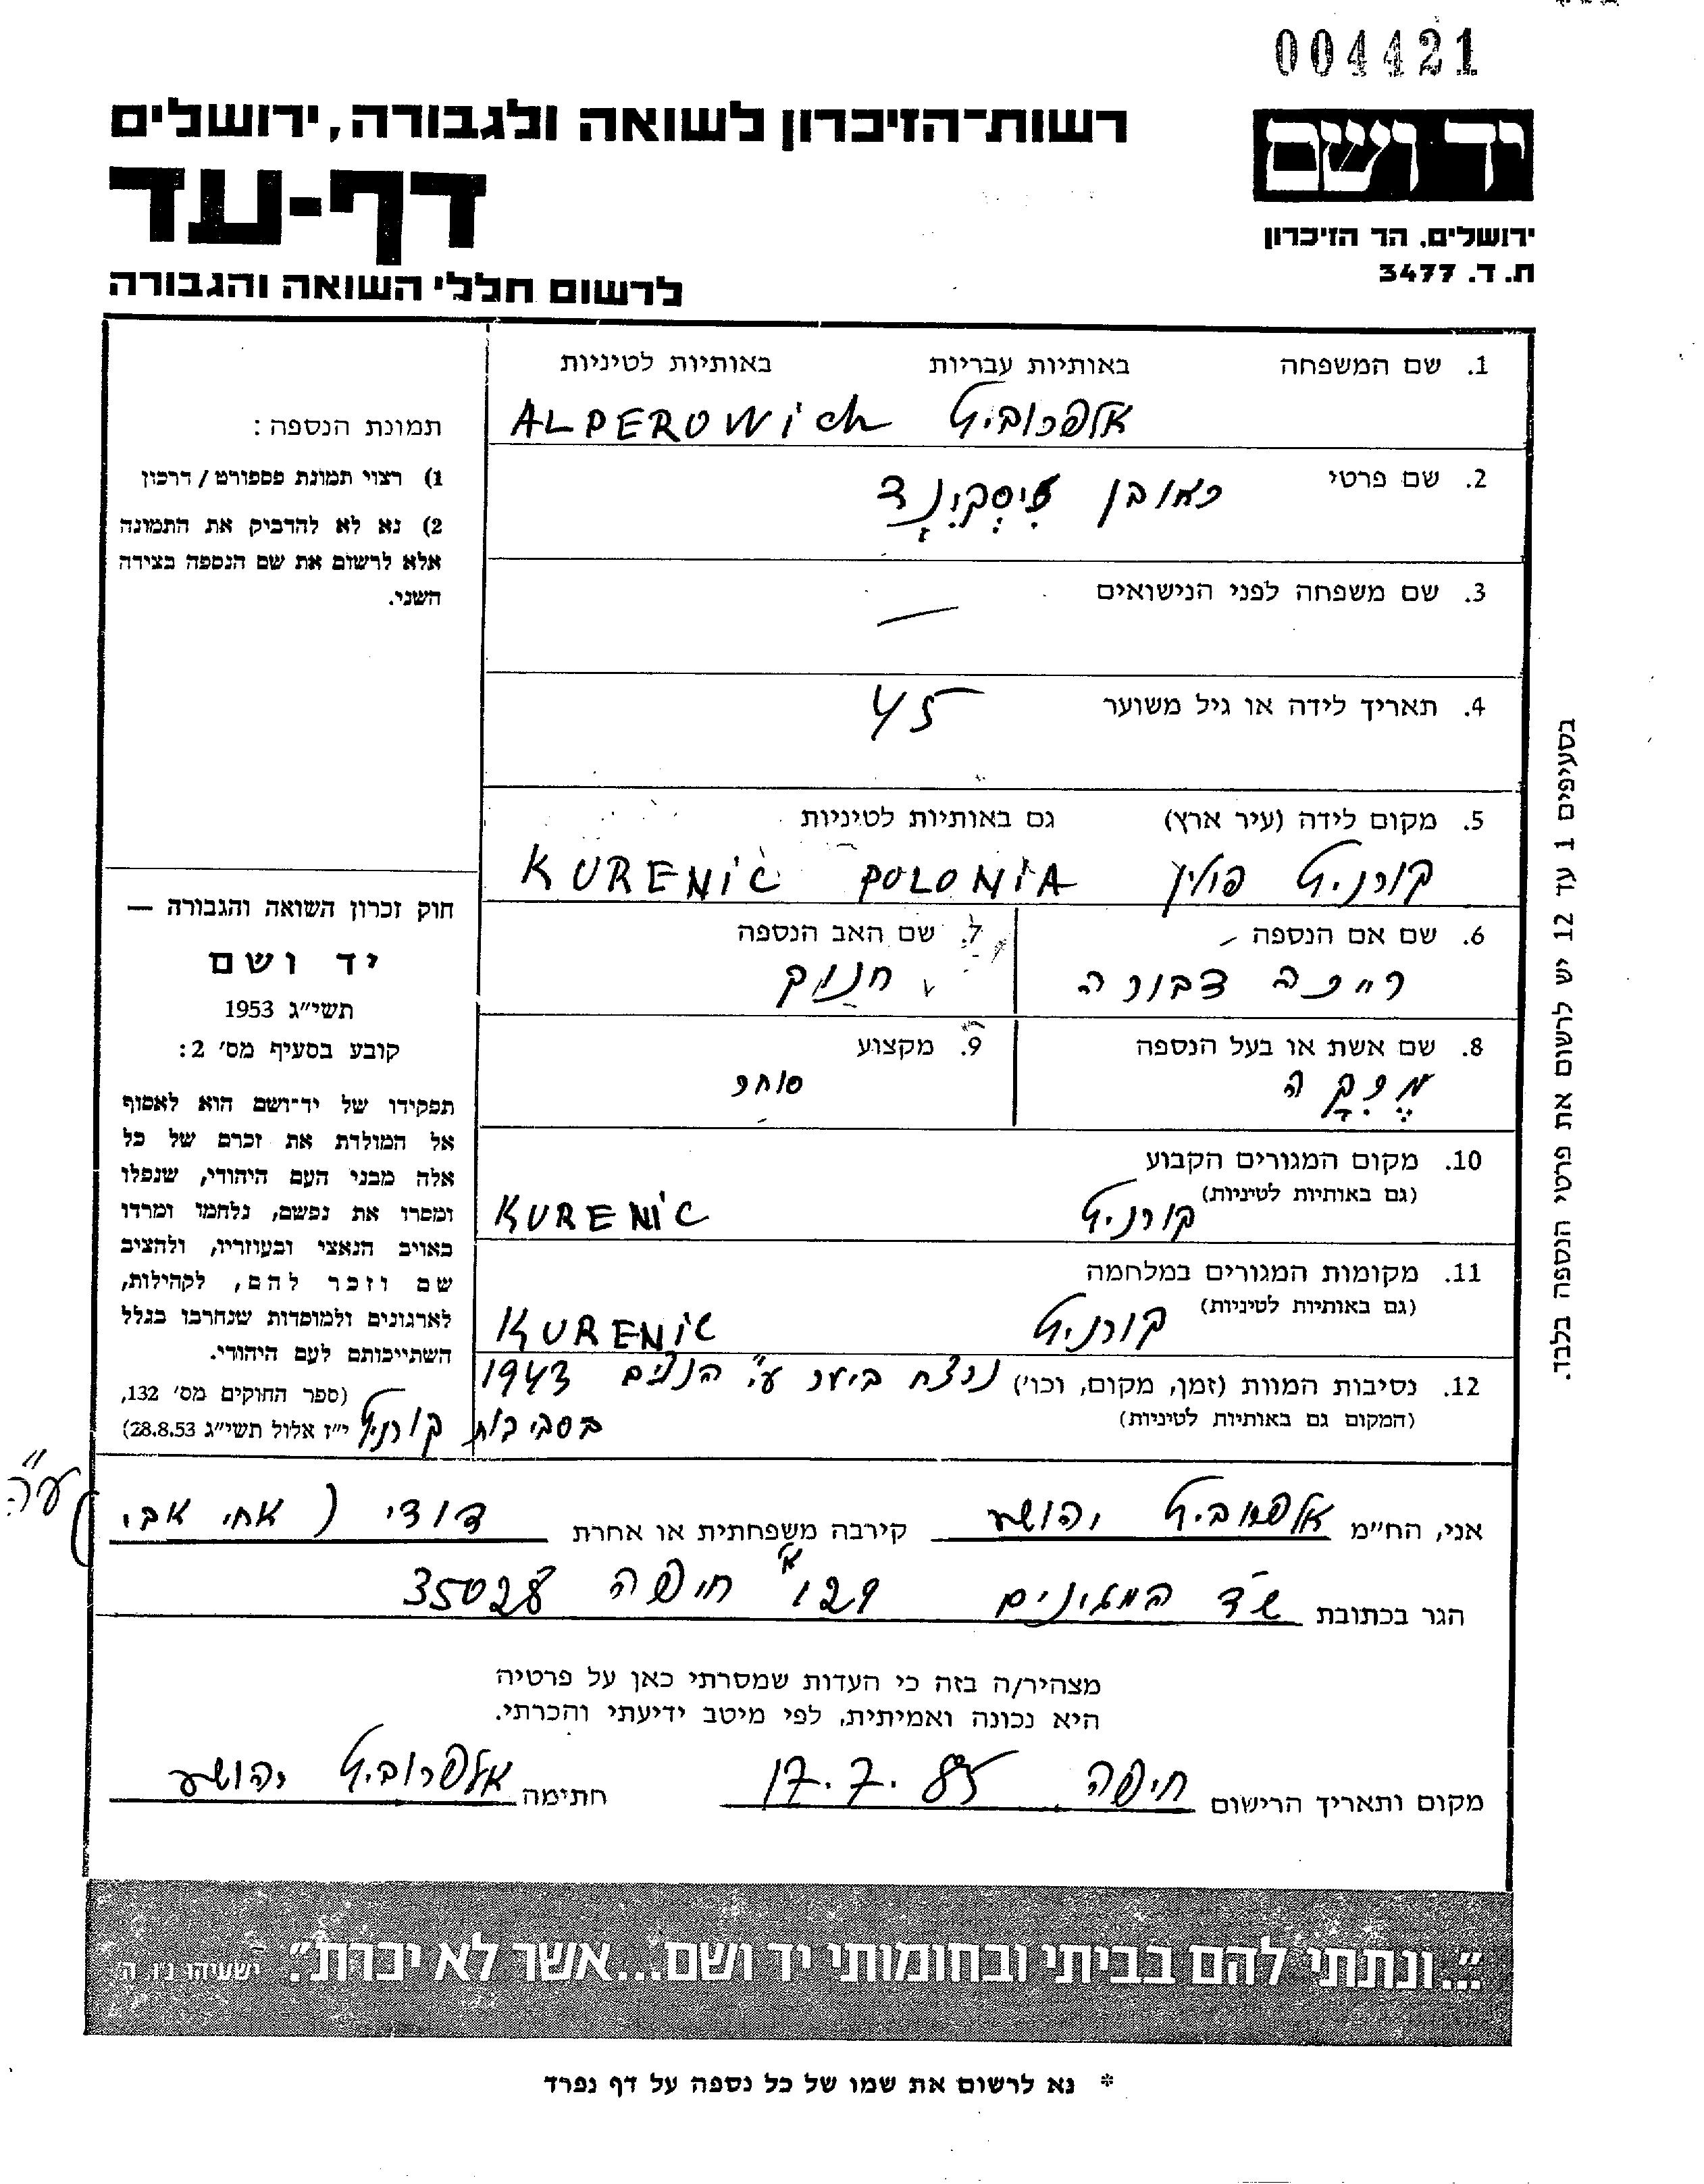 004421
יד ושם
רשות־הזיכרון לשואה ולגבורה, ירושלים
דף-עד
ירושלים, הר הזיכרון
ת. ד. 3477
לרשום חללי השואה והגבורה
1. שם המשפחה באותיות עבריות באותיות לטיניות
אלפרוביץ ALPEROWich
2. שם פרטי
ראובן זיסקינד
3. שם משפחה לפני הנישואים
—
4. תאריך לידה או גיל משוער
45
5. מקום לידה (עיר ארץ) גם באותיות לטיניות
קורניץ פולין KURENiC POLONiA
6. שם אם הנספה
דבורה
7. שם האב הנספה
חנוך
8. שם אשת או בעל הנספה
9. מקצוע
סוחר
10. מקום המגורים הקבוע
(גם באותיות לטיניות)
קורניץ KURENiC
11. מקומות המגורים במלחמה
(גם באותיות לטיניות)
קורניץ KURENiC
12. נסיבות המוות (זמן, מקום, וכו') נרצח ביער ע"י הנצים 1943
(המקום גם באותיות לטיניות)
בסביבות קורניץ
תמונת הנספה:
1) רצוי תמונת פספורט / דרכון
2) נא לא להדביק את התמונה
אלא לרשום את שם הנספה בצידה
השני.
חוק זכרון השואה והגבורה —
יד ושם
תשי"ג 1953
קובע בסעיף מס' 2:
תפקידו של יד־ושם הוא לאסוף
אל המולדת את זכרם של כל
אלה מבני העם היהודי, שנפלו
ומסרו את נפשם, נלחמו ומרדו
באויב הנאצי ובעוזריו, ולהציב
שם וזכר להם, לקהילות,
לארגונים ולמוסדות שנחרבו בגלל
השתייכותם לעם היהודי.
(ספר החוקים מס' 132,
י"ז אלול תשי"ג 28.8.53)
בסעיפים 1 עד 12 יש לרשום את פרטי הנספה בלבד.
אני, הח"מ אלפרוביץ יהושע קירבה משפחתית או אחרת דודי (אחי אבי ע"ה)
הגר בכתובת שד המגינים 129א חיפה 35028
מצהיר/ה בזה כי העדות שמסרתי כאן על פרטיה
היא נכונה ואמיתית, לפי מיטב ידיעתי והכרתי.
מקום ותאריך הרישום חיפה 17.7.85 חתימה אלפרוביץ יהושע
"...ונתתי להם בביתי ובחומותי יד ושם...אשר לא יכרת". ישעיהו נ"ו, ה'
* נא לרשום את שמו של כל נספה על דף נפרד